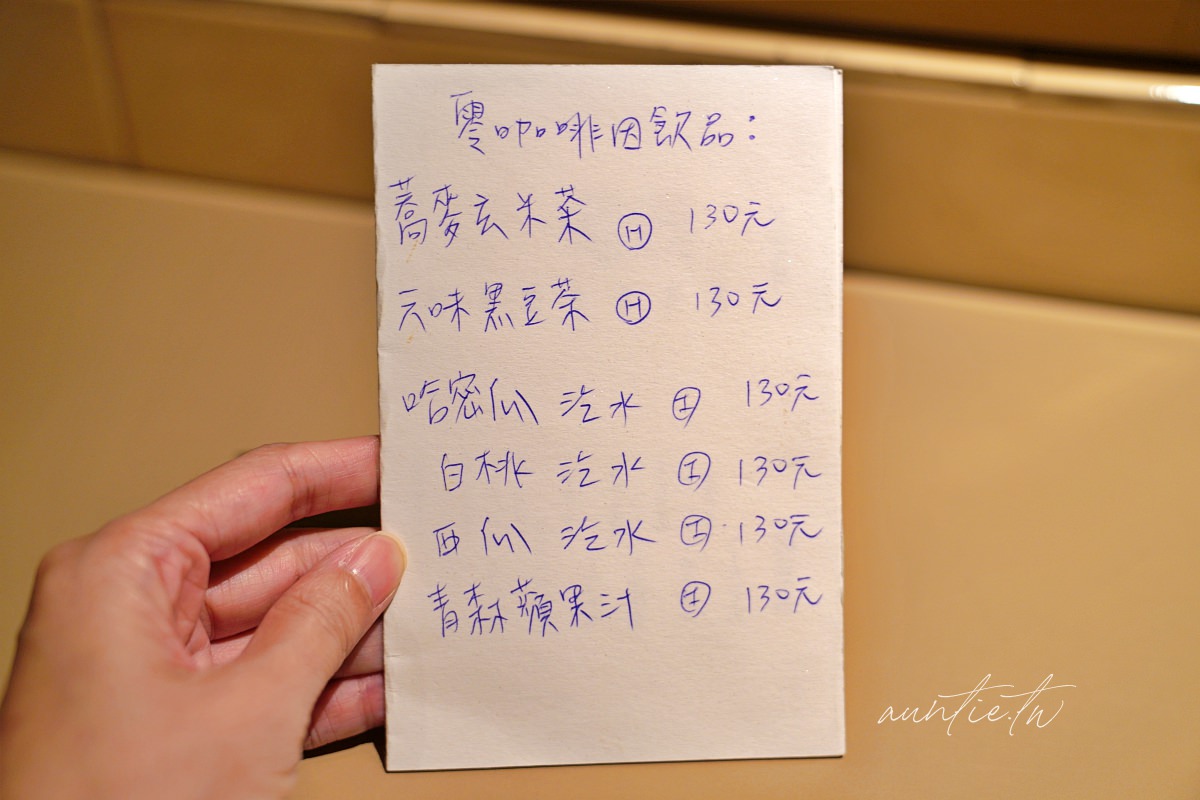 零咖啡因飲品：
蕎麥玄米茶 Ⓗ 130元
六味黑豆茶 Ⓗ 130元
哈密瓜 汽水 Ⓘ 130元
白桃 汽水 Ⓘ 130元
西瓜 汽水 Ⓘ 130元
青森蘋果汁 Ⓘ 130元
auntie.tw